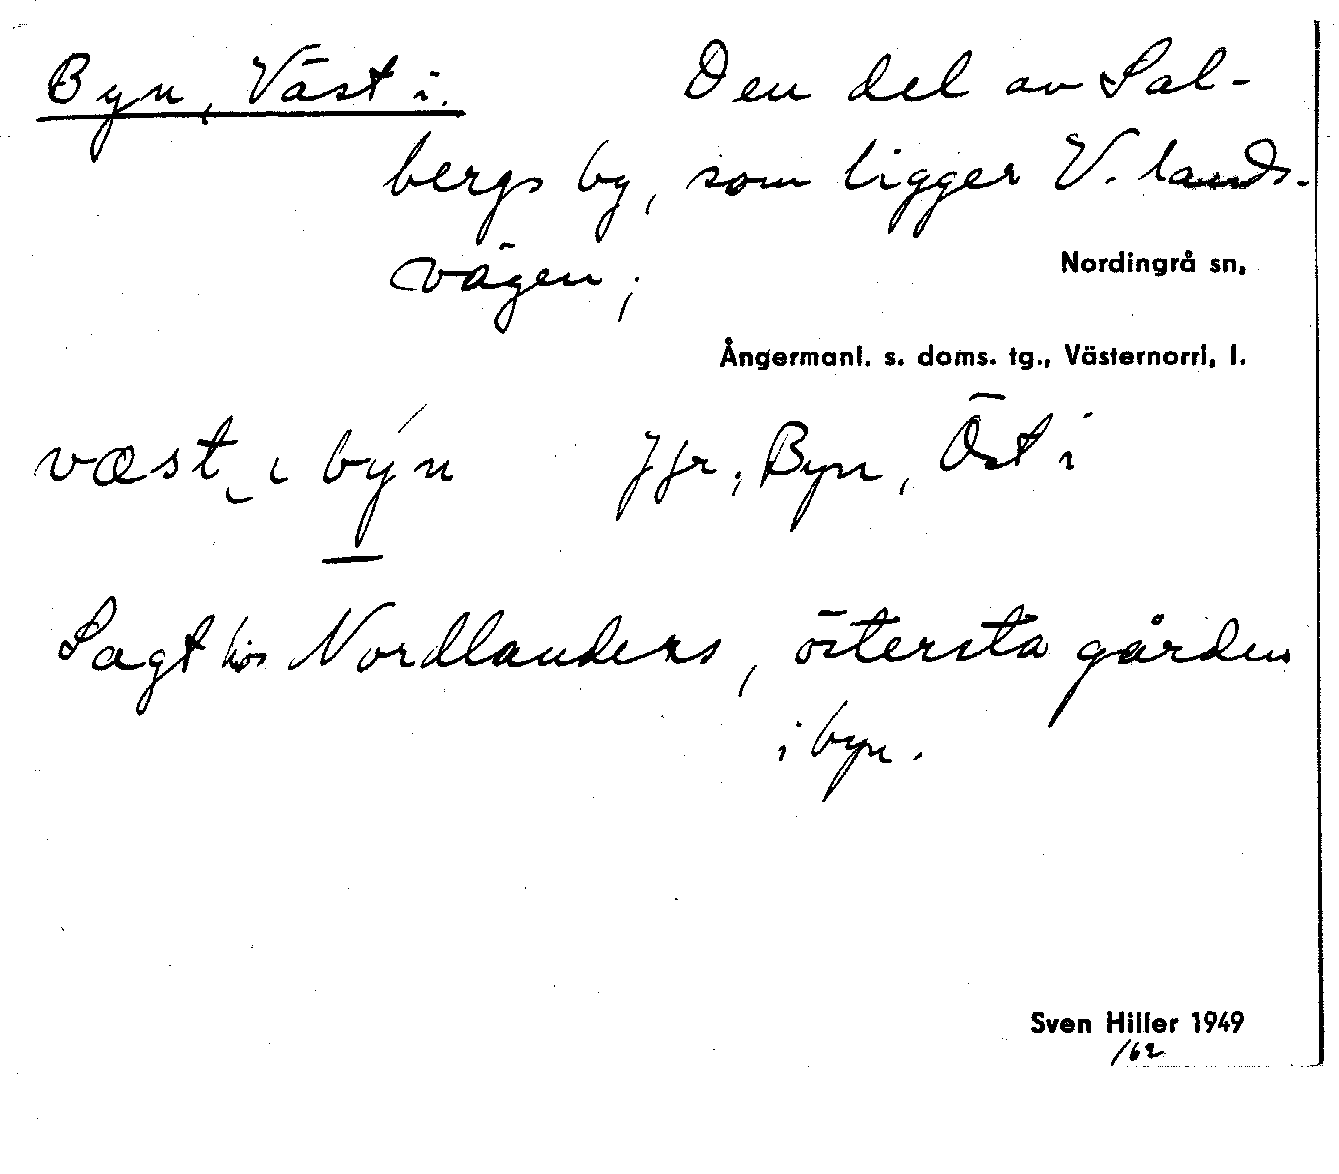 Byn, Väst i. Den del av Sal-
bergs by, som ligger V. lands-
vägen;
Nordingrå sn,
Ångermanl. s. doms. tg., Västernorrl, l.
væst ı býn Jfr; Byn, Öst i
Sagt hos Nordlanders, östersta gården
i byn.
Sven Hiller 1949
/62